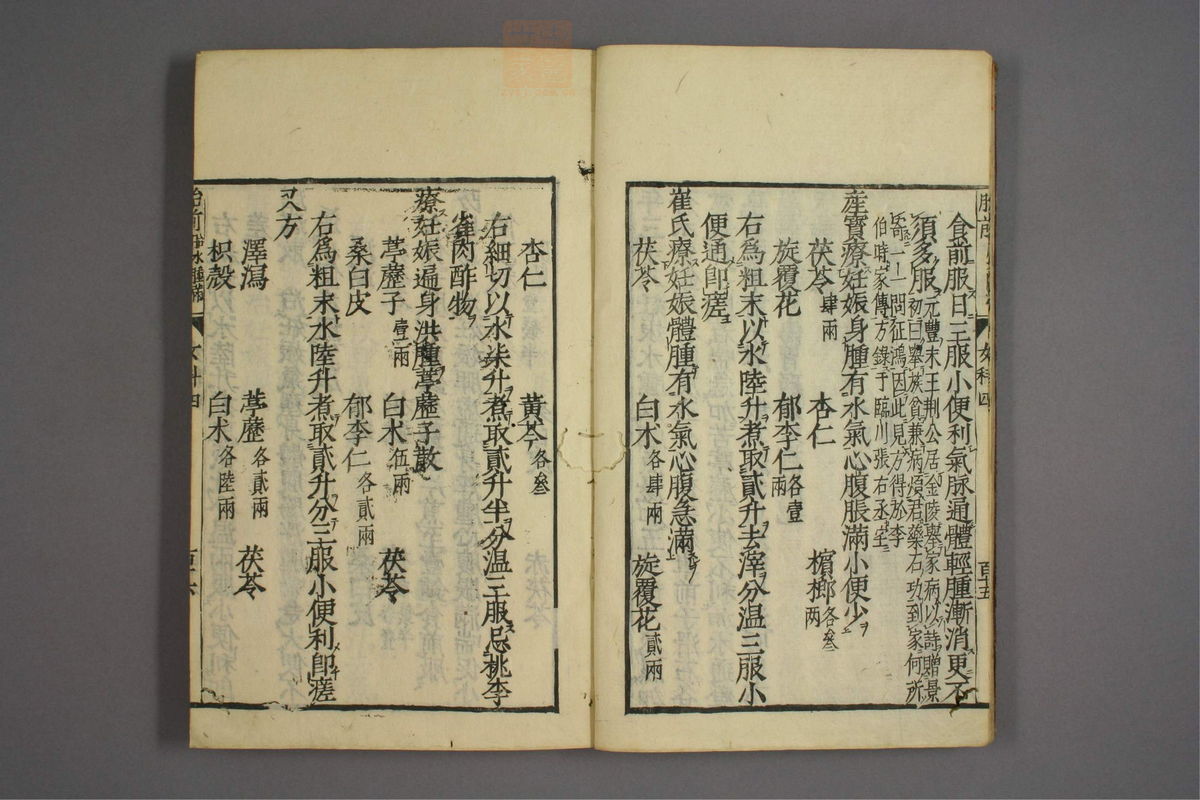 食前服日三服小便利氣脉通體輕腫漸消更不
須多服元豐末王荆公居金陵舉家病以詩贈景
初曰舉族貧兼病煩君藥石功到家何所
寄一一問征鴻因此見方得於李
伯時家傳方錄于臨川張右丞
産寶療妊娠身腫有水氣心腹脹滿小便少
茯苓肆兩 杏仁 檳榔各叁两
旋覆花 郁李仁各壹兩
右爲粗末以水陸升煮取貳升去滓分温三服小
便通即瘥
崔氏療妊娠體腫有水氣心腹急滿
茯苓 白术各肆兩 旋覆花貳兩
女科四
百十五
杏仁 黃芩各叁
右細切以水柒升煮取貳升半分温三服忌桃李
雀肉酢物
療妊娠遍身洪腫葶藶子散
葶藶子壹兩 白术伍兩 茯苓
桑白皮 郁李仁各貳兩
右爲粗末水陸升煮取貳升分三服小便利即瘥
又方
澤瀉 葶藶各貳兩 茯苓
枳殼 白术各陸兩